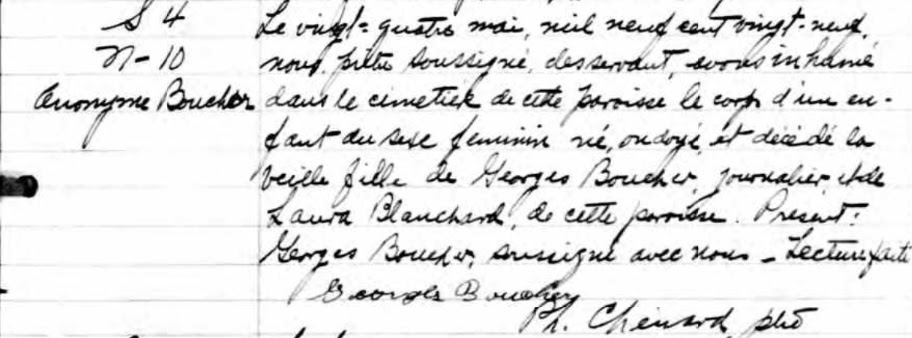 S 4
N-10
Anonyme Boucher
Le vingt-quatre mai, mil neuf cent vingt-neuf,
nous, prêtre soussigné, desservant, avons inhumé
dans le cimetière de cette paroisse le corps d'un en-
fant du sexe féminin né, ondoyé, et décédé la
veille fille de Georges Boucher, journalier, et de
Laura Blanchard, de cette paroisse. Présent:
Georges Boucher, soussigné avec nous - Lecture faite
Georges Boucher
Ph. Chénard ptre